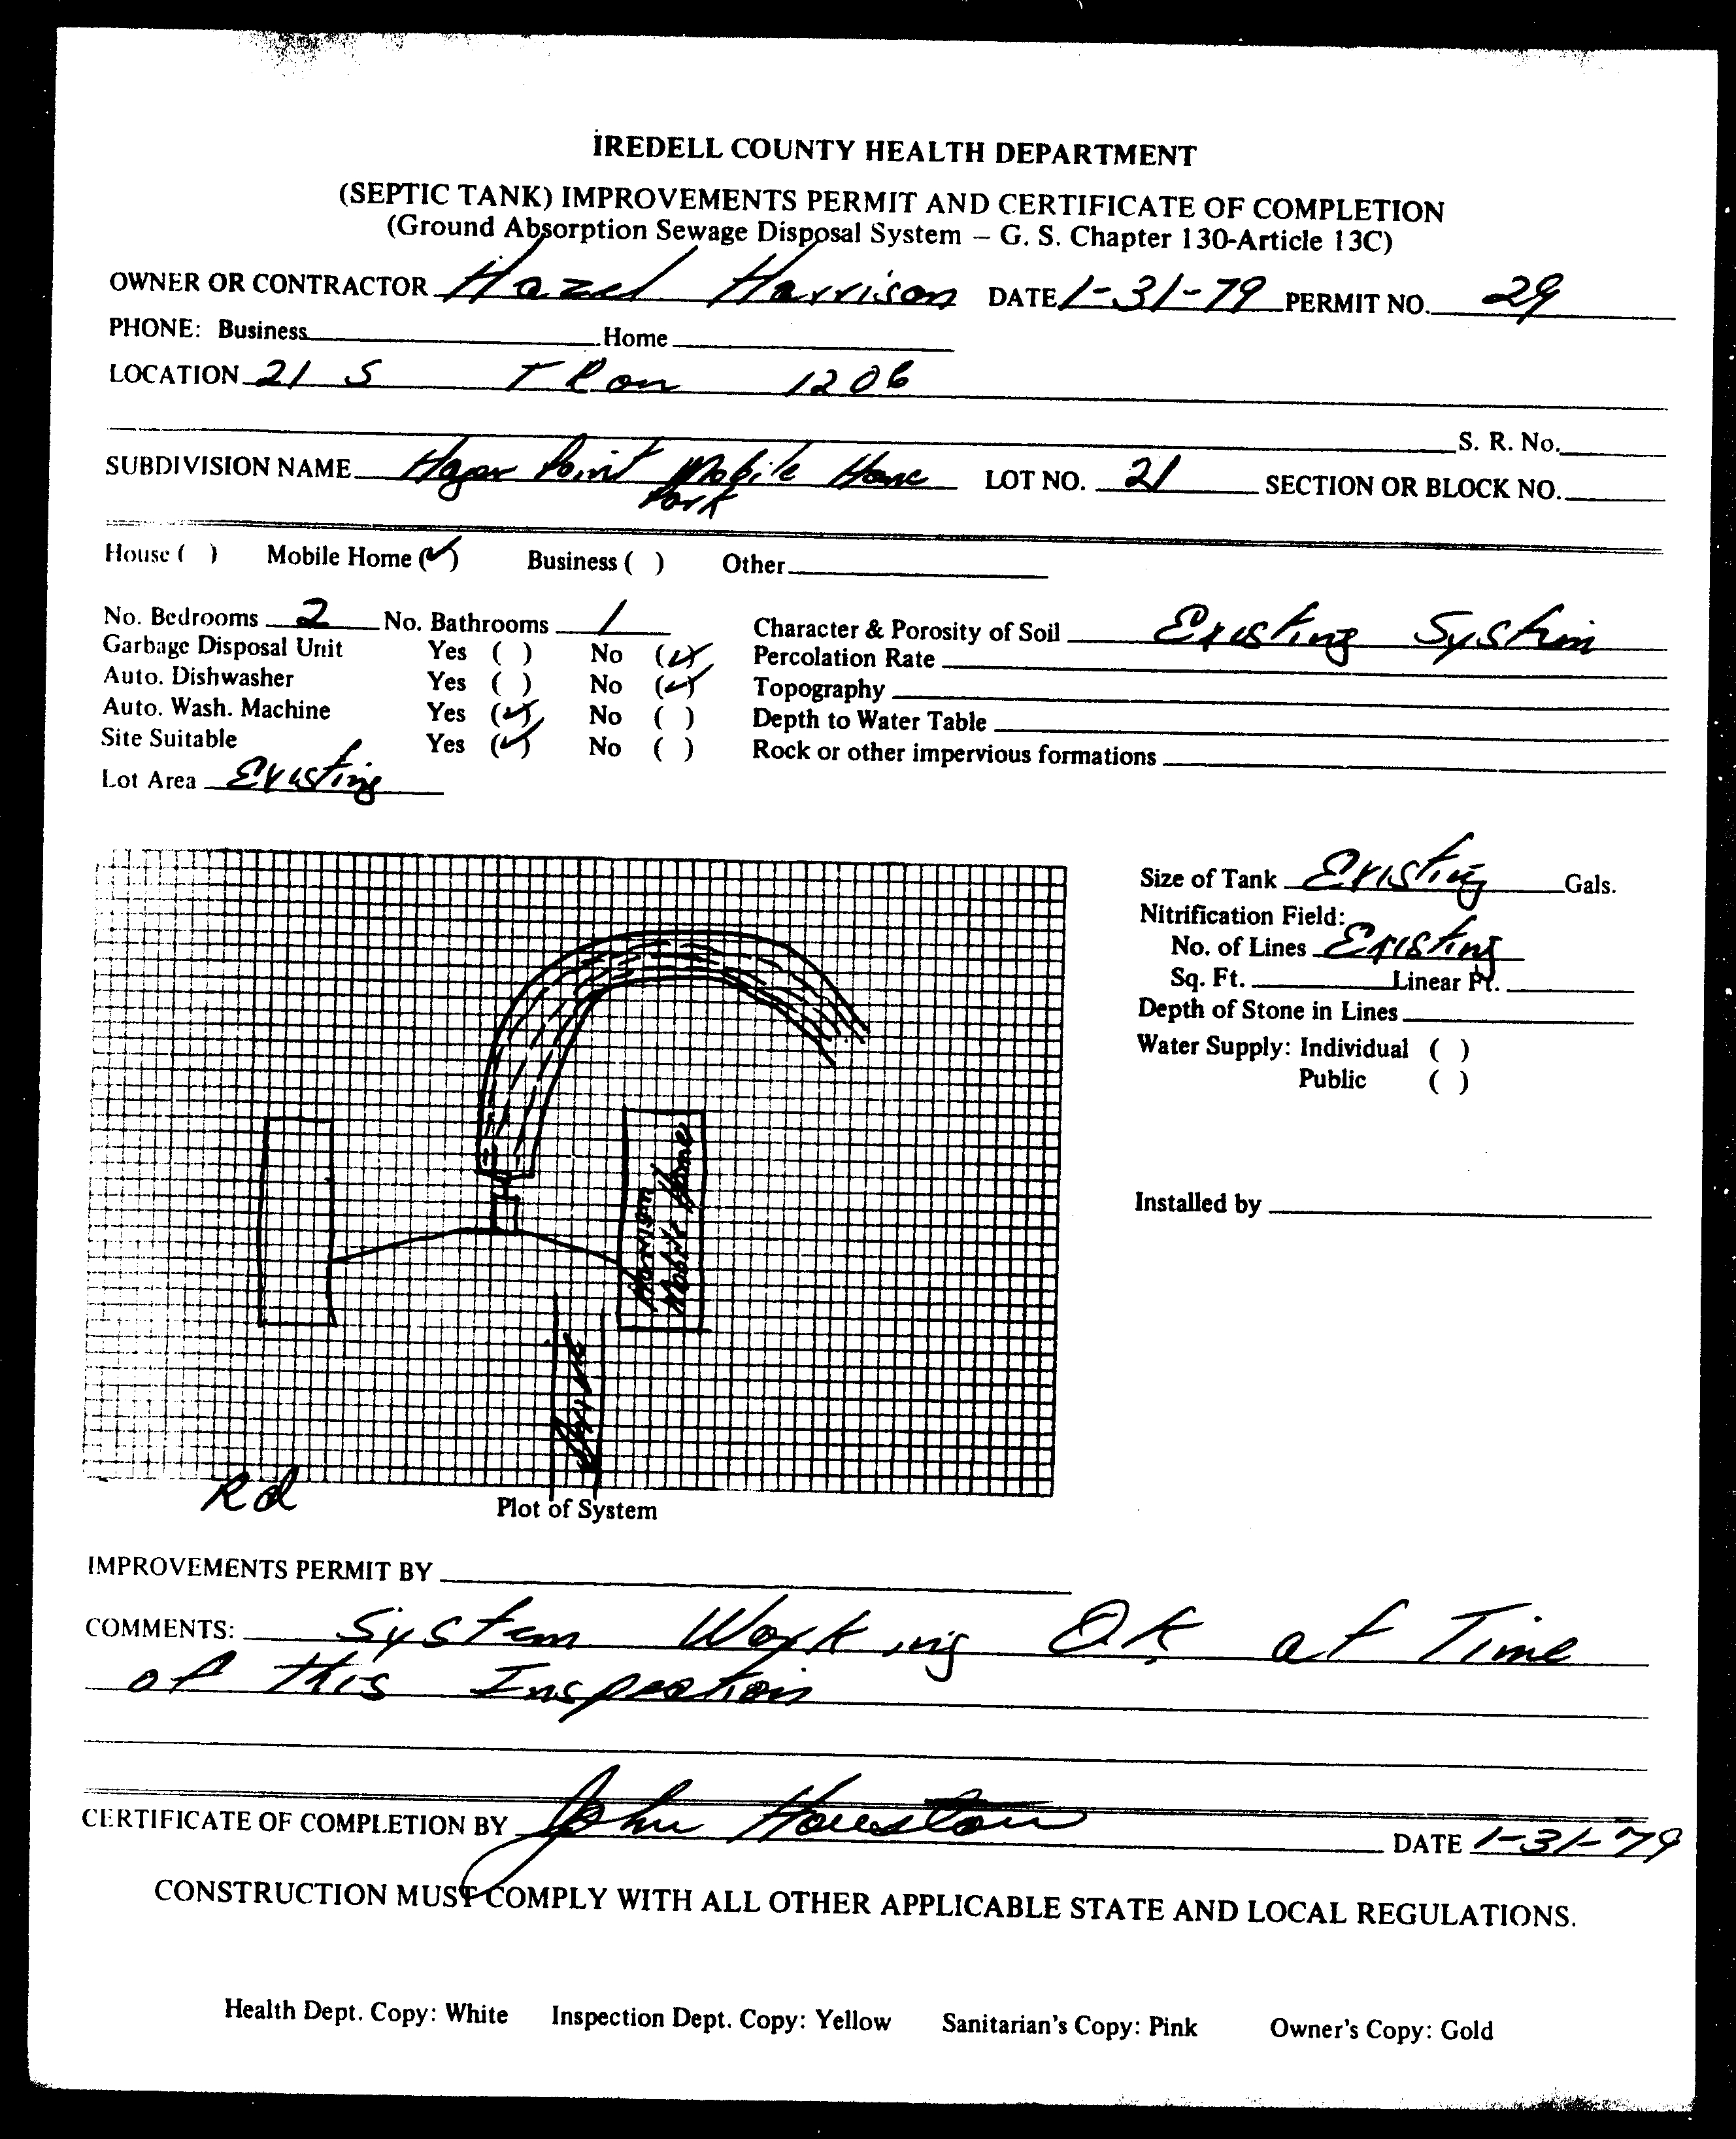 IREDELL COUNTY HEALTH DEPARTMENT
(SEPTIC TANK) IMPROVEMENTS PERMIT AND CERTIFICATE OF COMPLETION
(Ground Absorption Sewage Disposal System – G. S. Chapter 130-Article 13C)
OWNER OR CONTRACTOR Hazel Harrison DATE 1-31-79 PERMIT NO. 29
PHONE: Business Home
LOCATION 21 S T R on 1206
S. R. No.
SUBDIVISION NAME Hager Point Mobile Home LOT NO. 21 SECTION OR BLOCK NO.
Park
House ( ) Mobile Home (✓) Business ( ) Other
No. Bedrooms 2 No. Bathrooms 1 Character & Porosity of Soil Existing System
Garbage Disposal Unit Yes ( ) No (✓) Percolation Rate
Auto. Dishwasher Yes ( ) No (✓) Topography
Auto. Wash. Machine Yes (✓) No ( ) Depth to Water Table
Site Suitable Yes (✓) No ( ) Rock or other impervious formations
Lot Area Existing
Size of Tank Existing Gals.
Nitrification Field:
No. of Lines Existing
Sq. Ft. Linear Ft.
Depth of Stone in Lines
Water Supply: Individual ( )
Public ( )
Installed by
Harrison
Mobile Home
Rd
Plot of System
IMPROVEMENTS PERMIT BY
COMMENTS: System Working O.K. at Time
of this Inspection
CERTIFICATE OF COMPLETION BY John Houston DATE 1-31-79
CONSTRUCTION MUST COMPLY WITH ALL OTHER APPLICABLE STATE AND LOCAL REGULATIONS.
Health Dept. Copy: White Inspection Dept. Copy: Yellow Sanitarian's Copy: Pink Owner's Copy: Gold